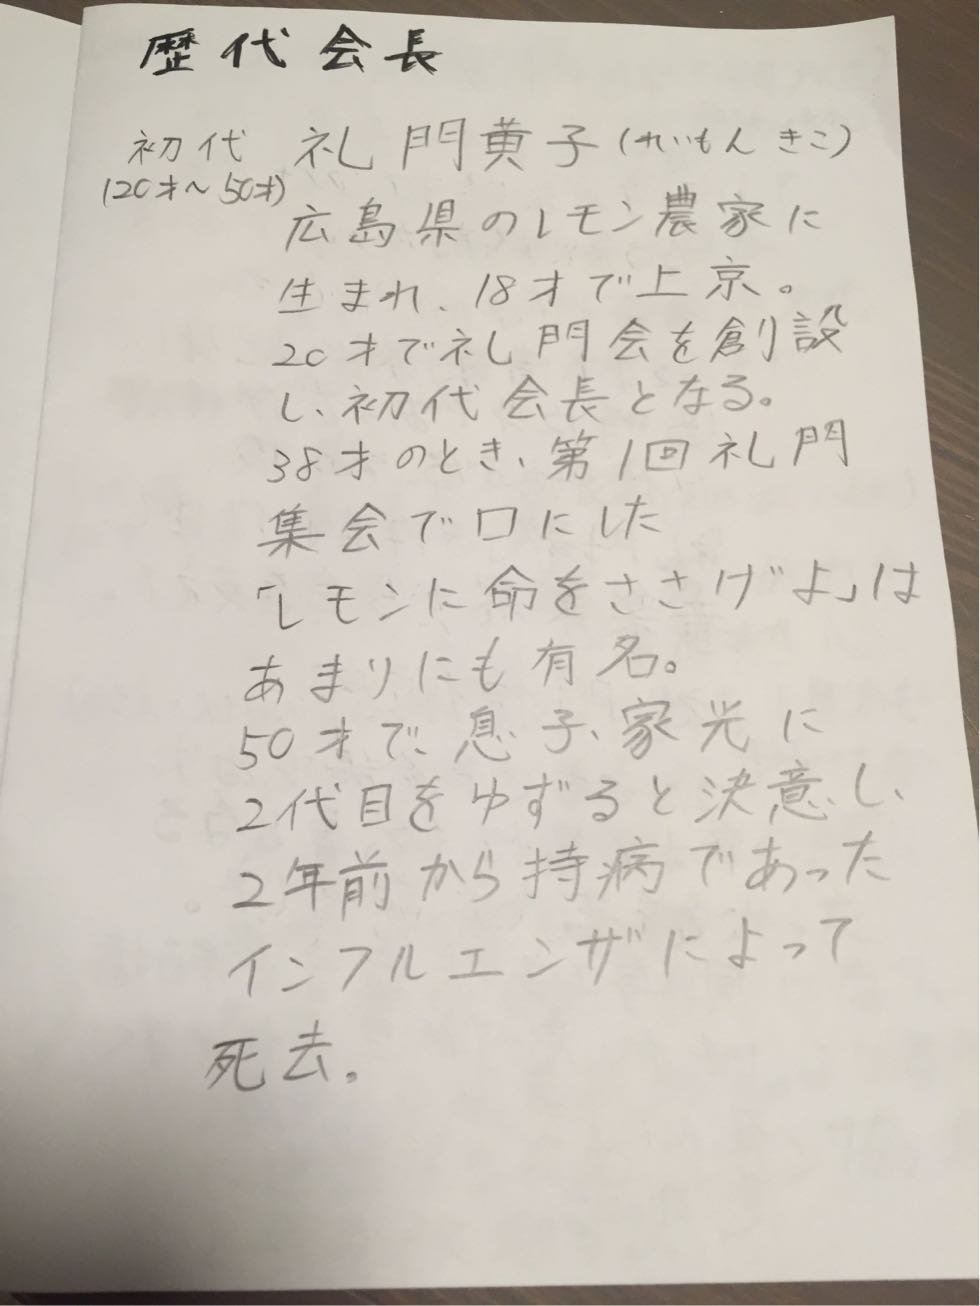 歴代会長
初代 礼門黄子(れいもん きこ)
(20才〜50才)
広島県のレモン農家に
生まれ、18才で上京。
20才で礼門会を創設
し、初代会長となる。
38才のとき、第1回礼門
集会で口にした
「レモンに命をささげよ」は
あまりにも有名。
50才で、息子、家光に
2代目をゆずると決意し、
2年前から持病であった
インフルエンザによって
死去。